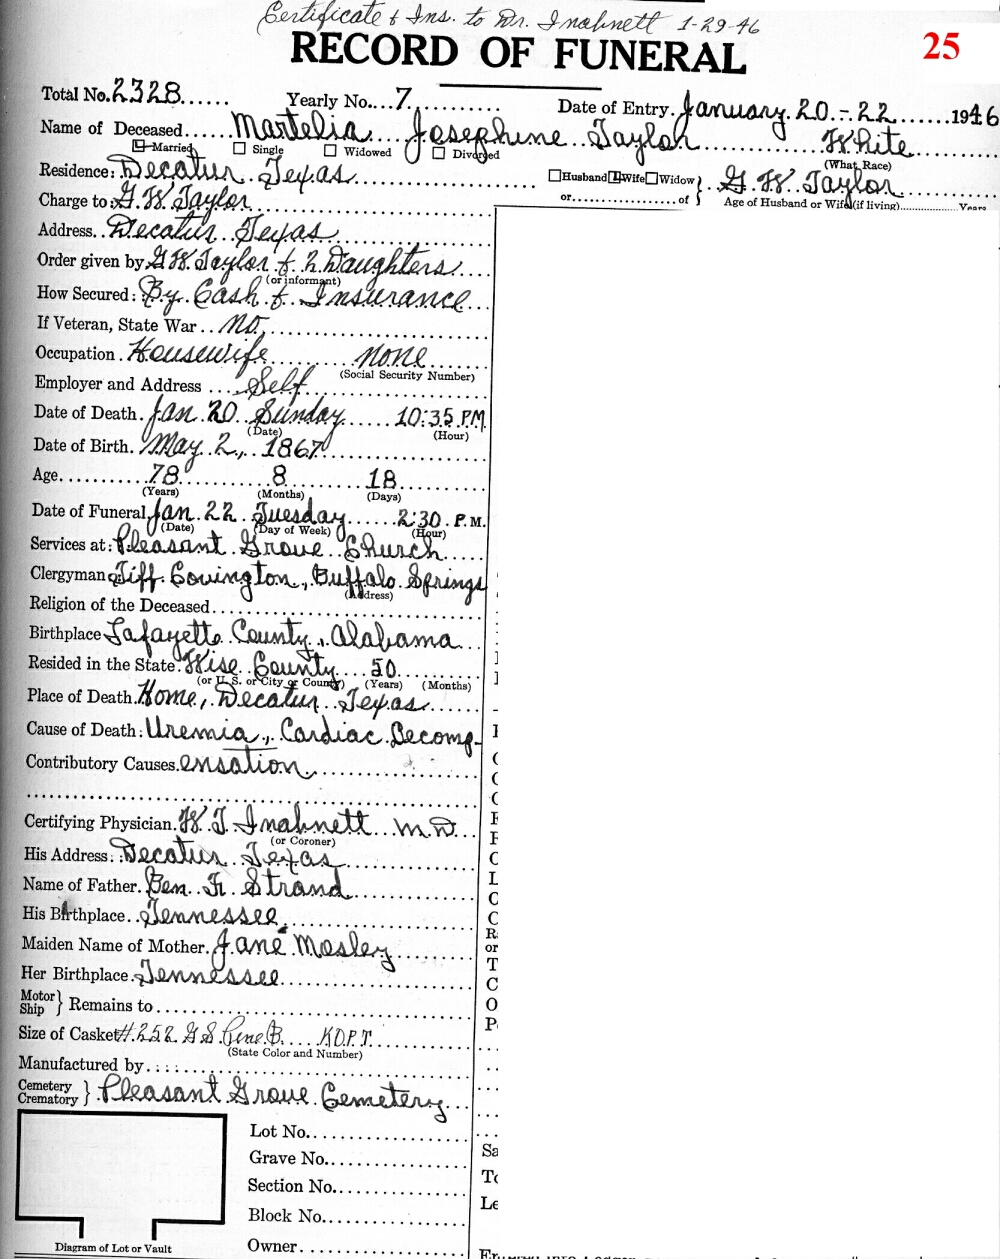 Certificate & Ins. to Dr. Inabnett 1-29-46
RECORD OF FUNERAL
25
Total No. 2328 Yearly No. 7 Date of Entry January 20-22 1946
Name of Deceased Martelia Josephine Taylor White
Married Single Widowed Divorced (What Race)
Residence: Decatur Texas Husband Wife Widow } G. W. Taylor
or of Age of Husband or Wife (if living) Years
Charge to G. W. Taylor
Address Decatur Texas
Order given by G W Taylor & 2 Daughters
(or informant)
How Secured: By Cash & Insurance
If Veteran, State War no
Occupation Housewife none
(Social Security Number)
Employer and Address Self
Date of Death Jan 20 Sunday 10:35 P.M.
(Date) (Hour)
Date of Birth May 2, 1867
Age 78 8 18
(Years) (Months) (Days)
Date of Funeral Jan 22 Tuesday 2:30 P.M.
(Date) (Day of Week) (Hour)
Services at: Pleasant Grove Church
Clergyman Tiff Covington, Buffalo Springs
(Address)
Religion of the Deceased
Birthplace Lafayette County, Alabama
Resided in the State Wise County 50
(or U. S. or City or County) (Years) (Months)
Place of Death Home, Decatur Texas
Cause of Death: Uremia, Cardiac Decomp-
Contributory Causes ensation
Certifying Physician W. T. Inabnett M.D.
(or Coroner)
His Address: Decatur Texas
Name of Father Ben F. Strand
His Birthplace Tennessee
Maiden Name of Mother Jane Mosley
Her Birthplace Tennessee
Motor
Ship } Remains to
Size of Casket #252 G S B
(State Color and Number)
Manufactured by
Cemetery
Crematory } Pleasant Grove Cemetery
Lot No.
Grave No.
Section No.
Block No.
Owner
Diagram of Lot or Vault